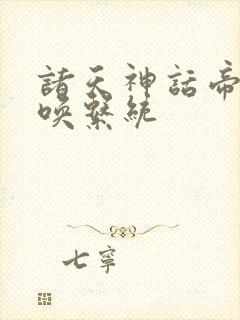 諸天神話帝
喚繫統
七寧